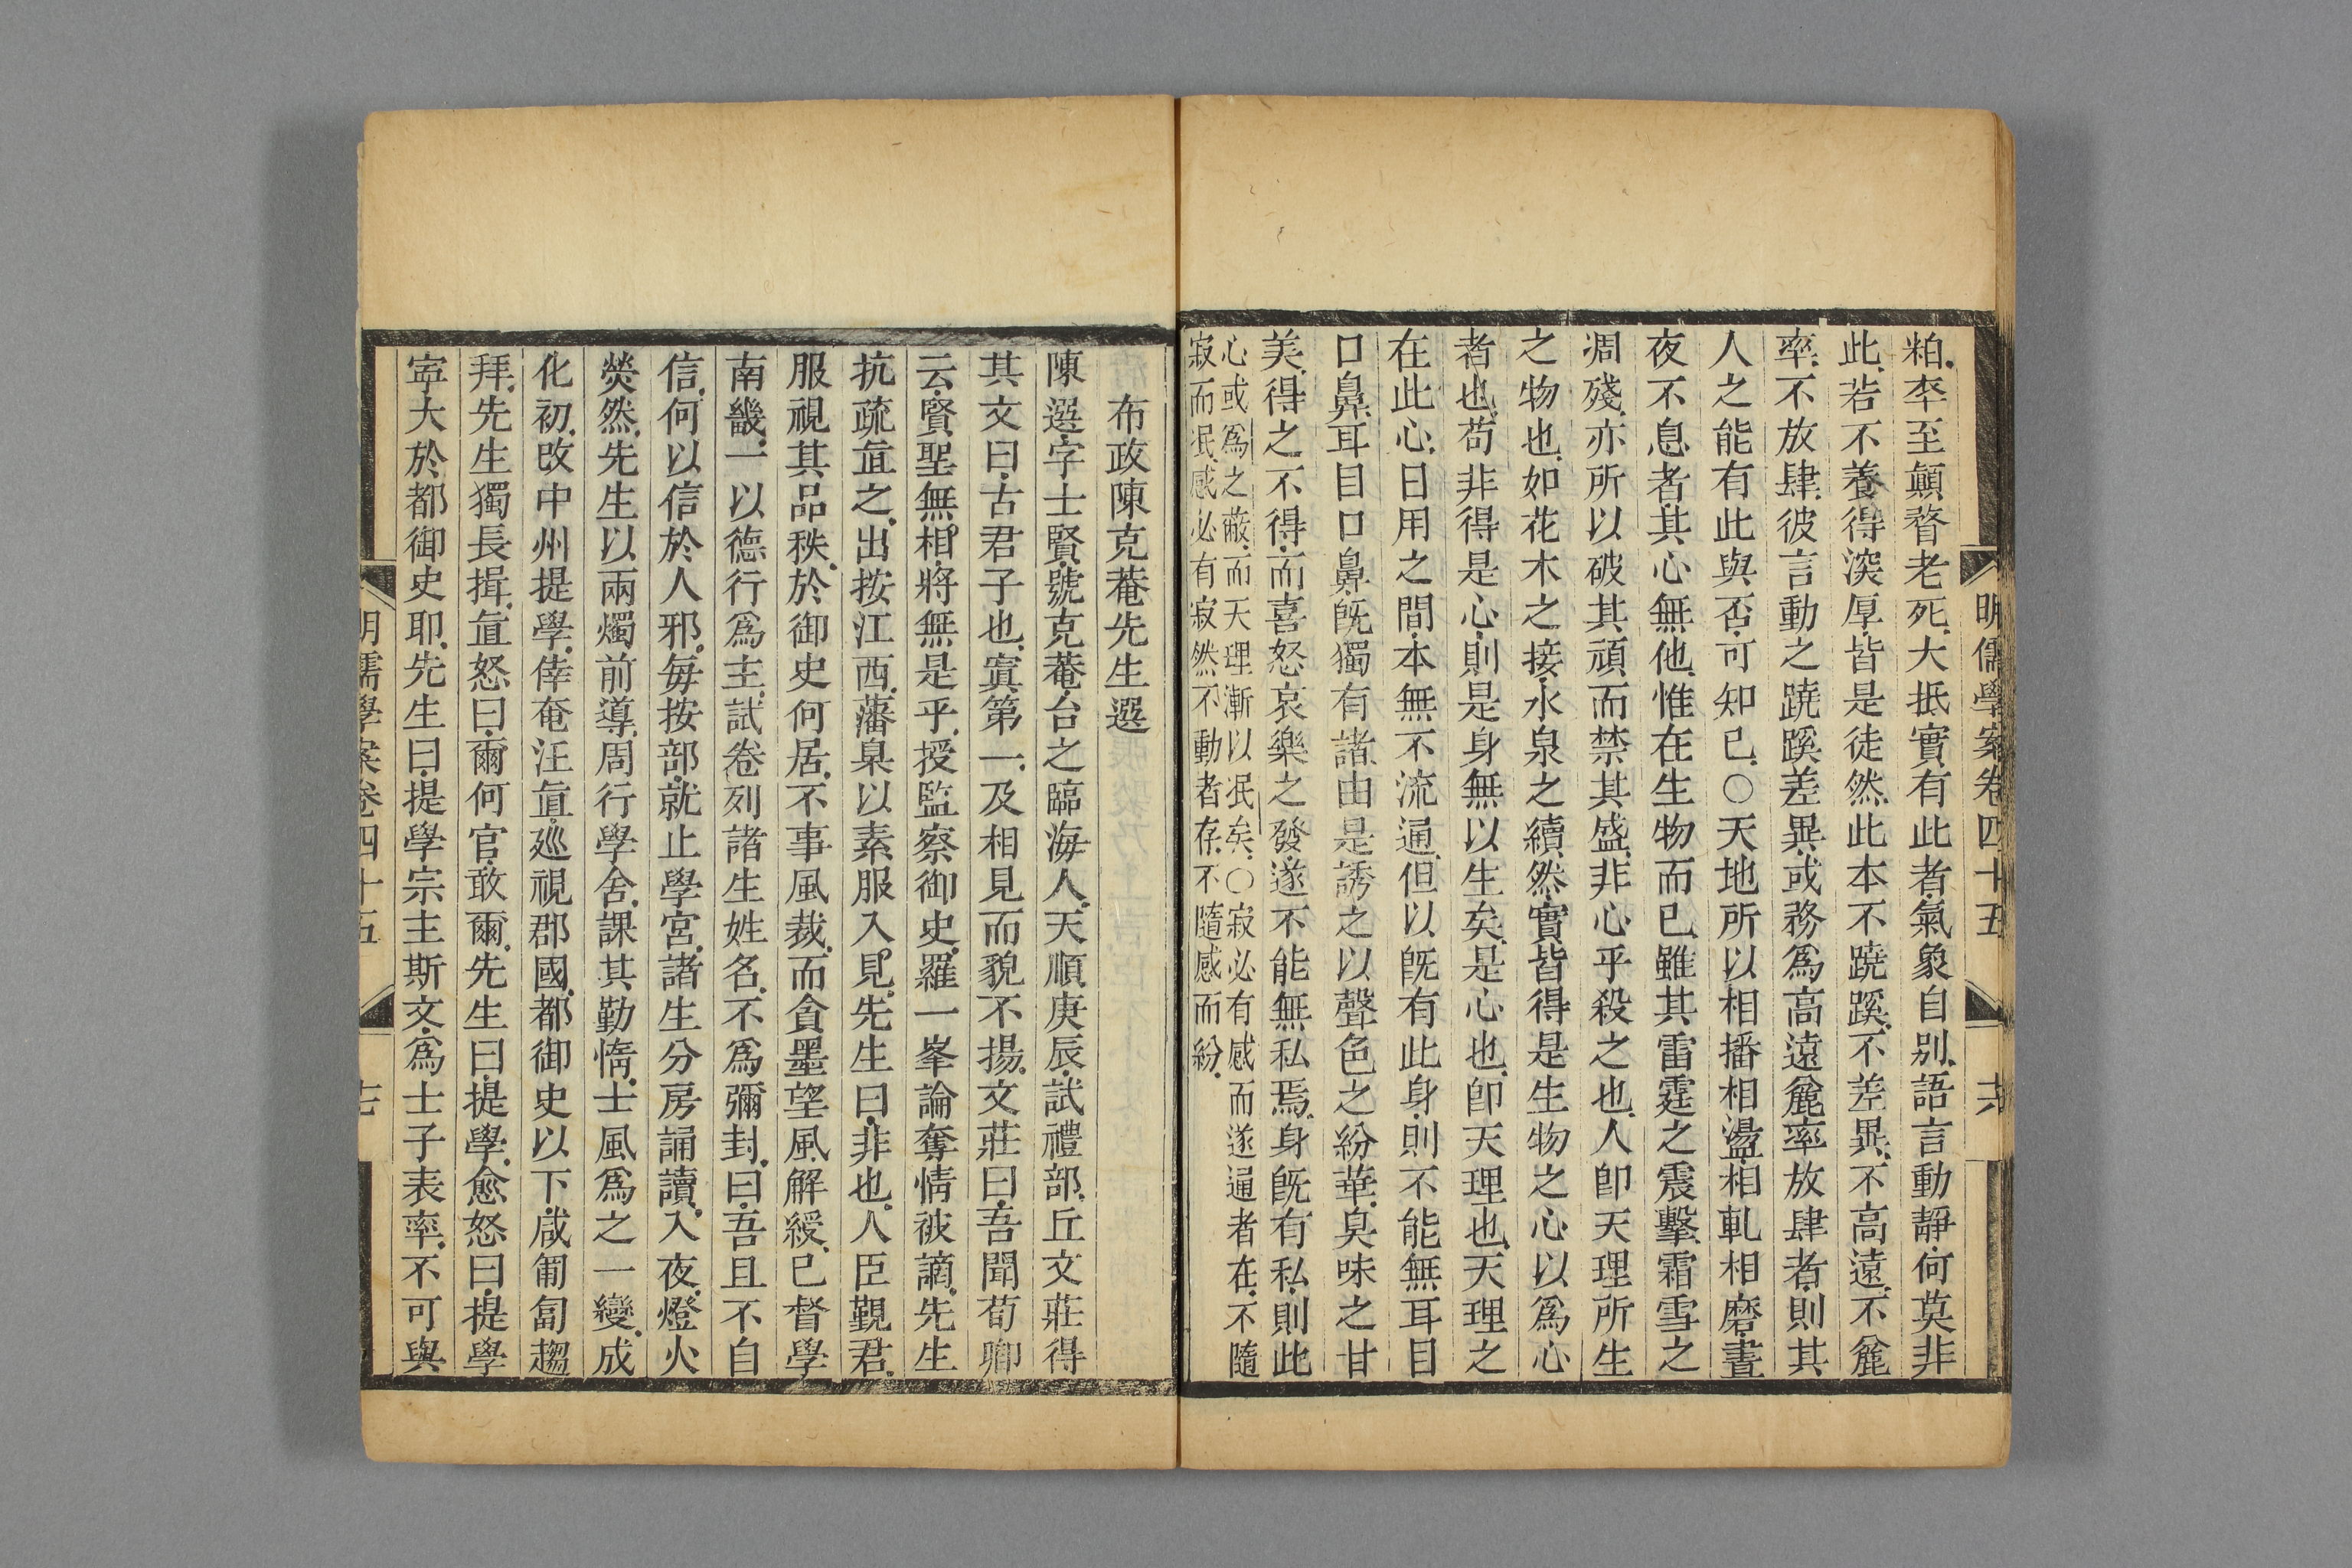 明儒學案卷四十五
六
粕卒至顛瞀老死大抵實有此者氣象自別語言動靜何莫非
此若不養得深厚皆是徒然此本不蹺蹊不差異不高遠不麄
率不放肆彼言動之蹺蹊差異或務爲高遠麄率放肆者則其
人之能有此與否可知已○天地所以相播相盪相軋相磨晝
夜不息者其心無他惟在生物而已雖其雷霆之震擊霜雪之
凋殘亦所以破其頑而禁其盛非心乎殺之也人卽天理所生
之物也如花木之接水泉之續然實皆得是生物之心以爲心
者也苟非得是心則是身無以生矣是心也卽天理也天理之
在此心日用之間本無不流通但以旣有此身則不能無耳目
口鼻耳目口鼻旣獨有諸由是誘之以聲色之紛華臭味之甘
美得之不得而喜怒哀樂之發遂不能無私焉身旣有私則此
心或爲之蔽而天理漸以泯矣○寂必有感而遂通者在不隨
寂而泯感必有寂然不動者存不隨感而紛
布政陳克菴先生選
陳選字士賢號克菴台之臨海人天順庚辰試禮部丘文莊得
其文曰古君子也寘第一及相見而貌不揚文莊曰吾聞荀卿
云賢聖無相將無是乎授監察御史羅一峯論奪情被謫先生
抗疏直之出按江西藩臬以素服入見先生曰非也人臣覲君
服視其品秩於御史何居不事風裁而貪墨望風解綬已督學
南畿一以德行爲主試卷列諸生姓名不爲彌封曰吾且不自
信何以信於人邪每按部就止學宮諸生分房誦讀入夜燈火
熒然先生以兩燭前導周行學舍課其勤惰士風爲之一變成
化初改中州提學倖奄汪直廵視郡國都御史以下咸匍匐趨
拜先生獨長揖直怒曰爾何官敢爾先生曰提學愈怒曰提學
寧大於都御史耶先生曰提學宗主斯文爲士子表率不可與
明儒學案卷四十五
七